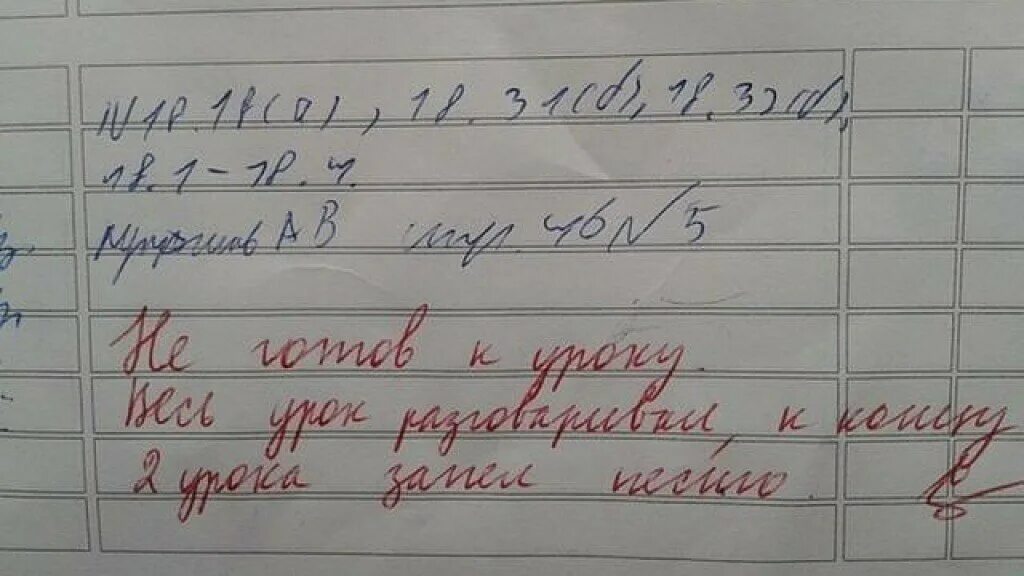 №18.18(а), 18.31(б), 18.32(б),
18.1-18.4.
А В стр. 46 № 5
Не готов к уроку.
Весь урок разговаривал, к концу
2 урока запел песню.